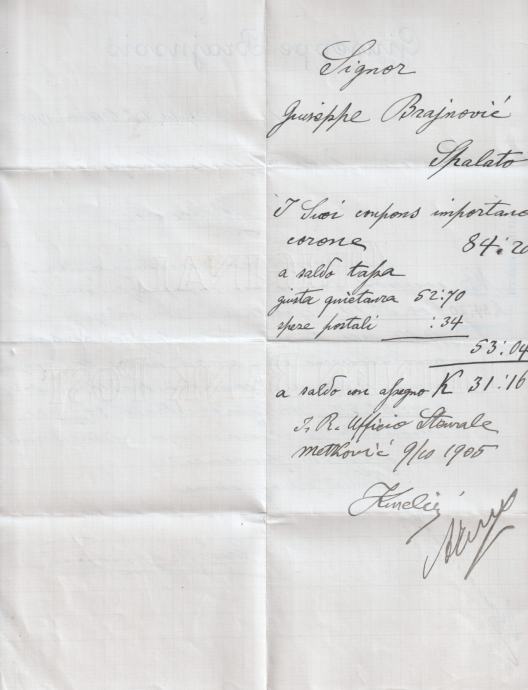 Signor
Giuseppe Brajnović
Spalato
I Suoi coupons importano
corone 84:20
a saldo tassa
giusta quietanza 52:70
spese postali :34
53:04
a saldo con assegno K 31:16
I. R. Ufficio
Metković 9/10 1905